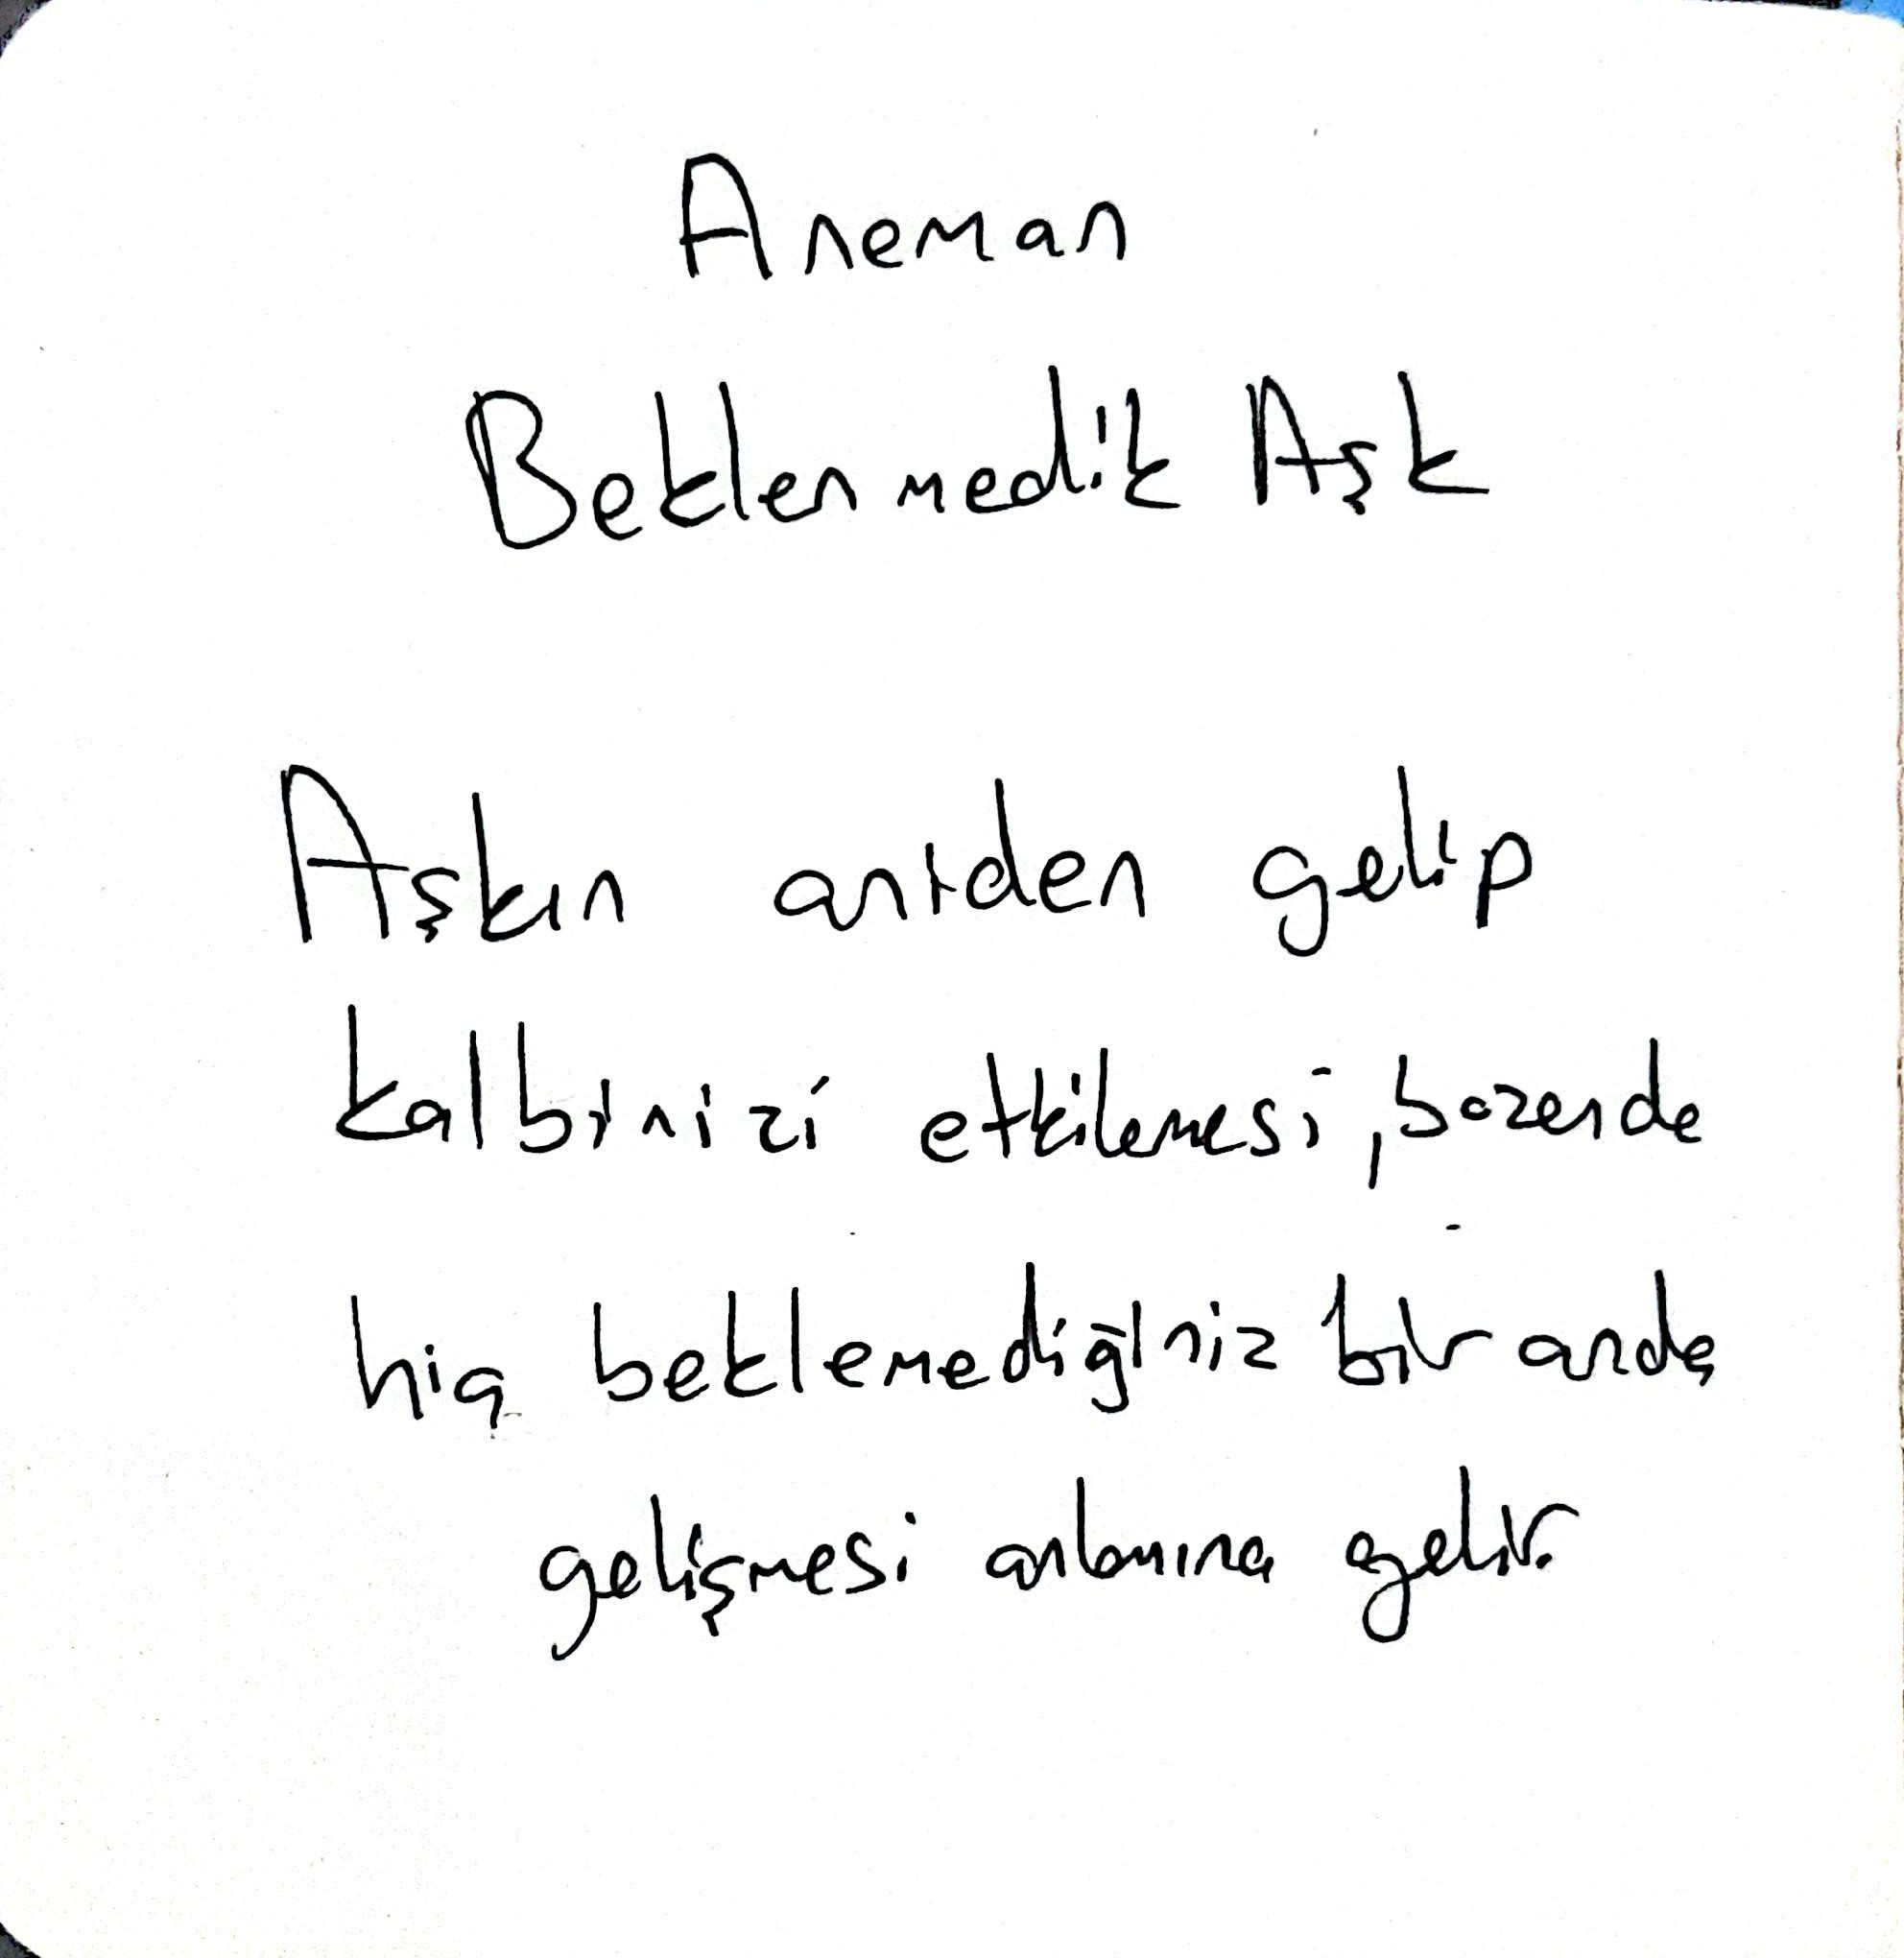 Aneman
Beklenmedik Aşk
Aşkın aniden gelip
kalbinizi etkilemesi, bazende
hiç beklemediğiniz bir anda
gelişmesi anlamına gelir.